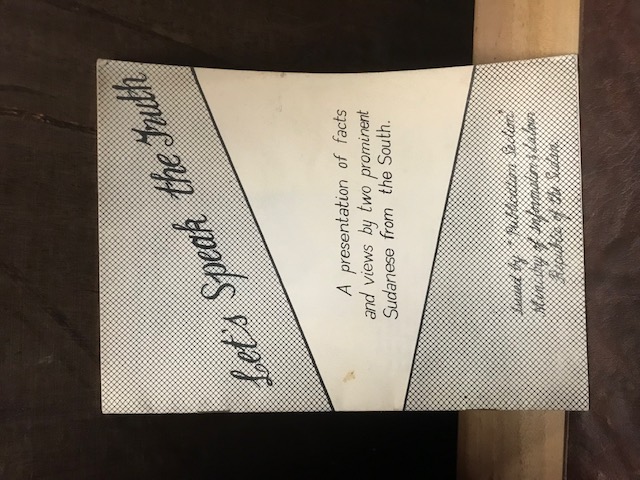 Let's Speak the Truth
A presentation of facts
and views by two prominent
Sudanese from the South.
Issued by "Publication Section"
Ministry of Information & Labour
Republic of the Sudan.